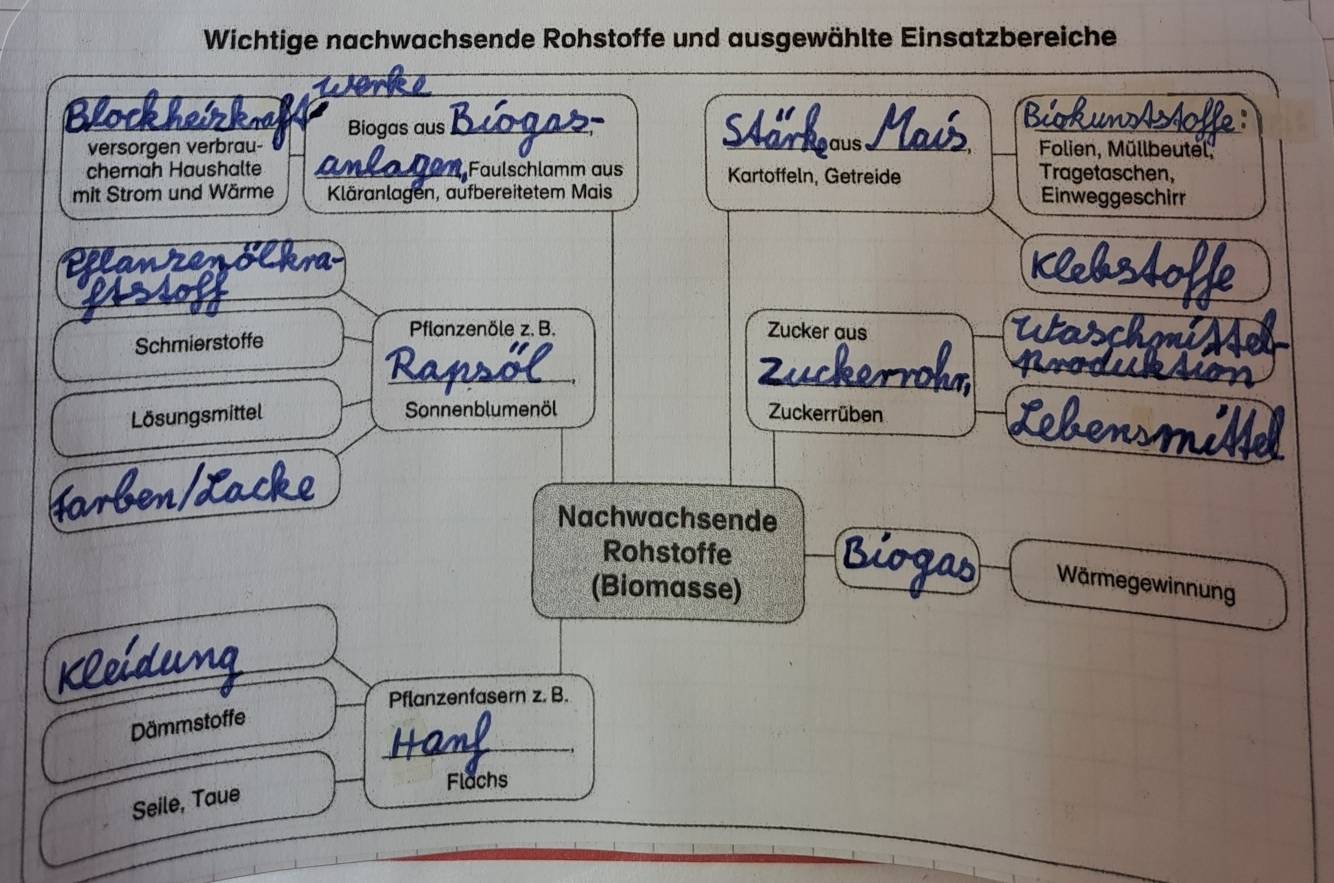 Wichtige nachwachsende Rohstoffe und ausgewählte Einsatzbereiche
Blockheizkraft
werke
versorgen verbrau-
chernah Haushalte
mit Strom und Wärme
Biogas aus Biogas-
anlagen, Faulschlamm aus
Kläranlagen, aufbereitetem Mais
Stärke aus Mais,
Kartoffeln, Getreide
Biokunststoffe:
Folien, Müllbeutel,
Tragetaschen,
Einweggeschirr
Klebstoffe
Pflanzenölkra-
ftstoff
Schmierstoffe
Lösungsmittel
Farben/Lacke
Pflanzenöle z. B.
Rapsöl,
Sonnenblumenöl
Zucker aus
Zuckerrohr,
Zuckerrüben
Waschmittel-
produktion
Lebensmittel
Nachwachsende
Rohstoffe
(Biomasse)
Biogas
Wärmegewinnung
Kleidung
Dämmstoffe
Seile, Taue
Pflanzenfasern z. B.
Hanf,
Flachs